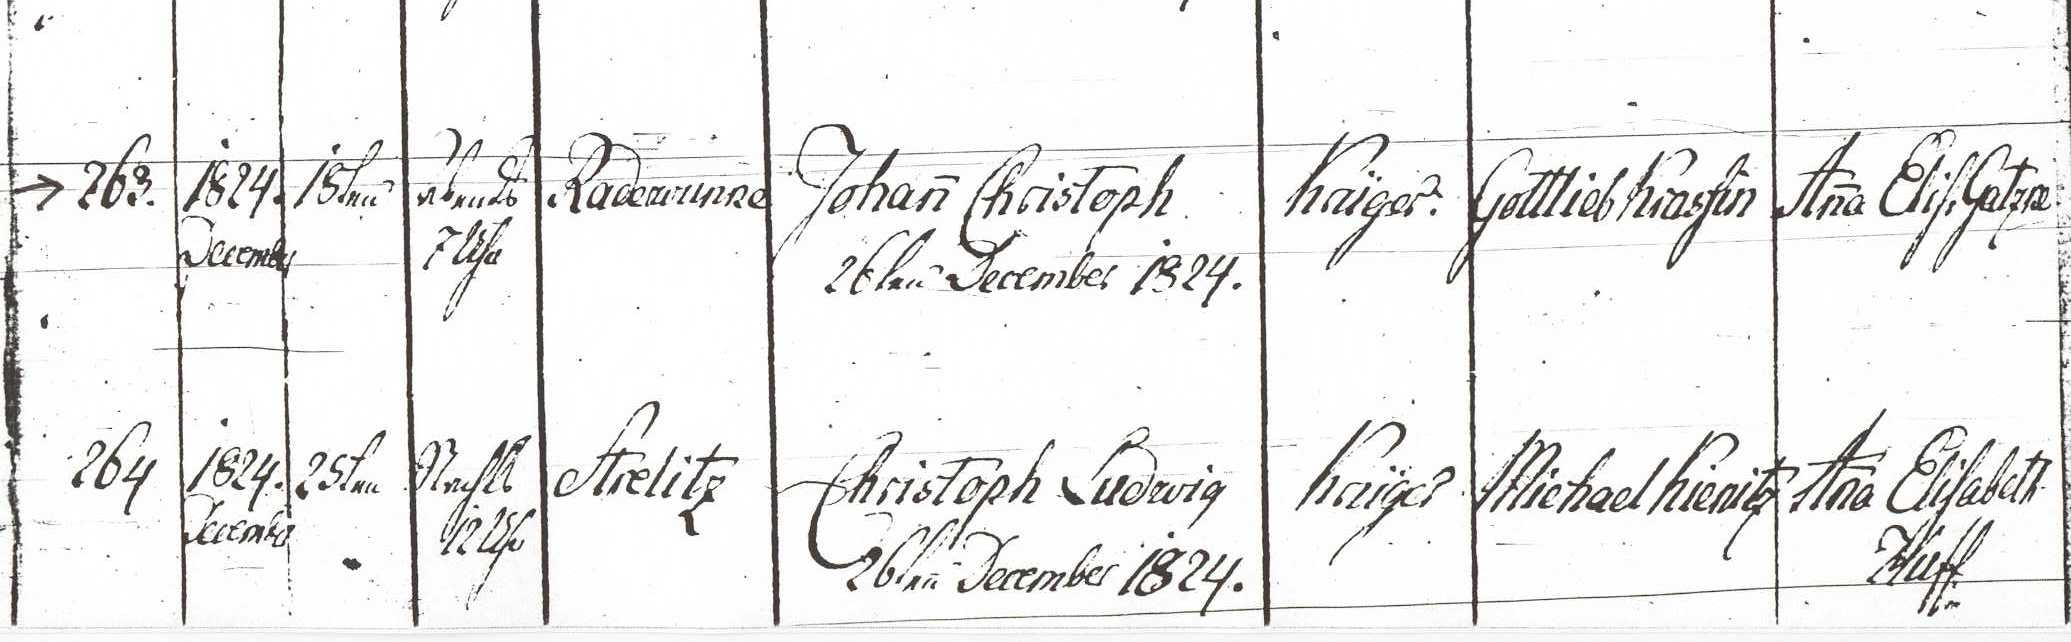 263. 1824. 18ten Abends Radewunne Johan̄ Christoph Krüger. Gottlieb Krassin An̄a Elis. Gatzke
December 7 Uhr 26ten December 1824.
264 1824. 25ten Nachts Strelitz Christoph Ludwig Krüger Michael Kienitz An̄a Elisabeth
December 12 Uhr 26ten December 1824. Huff